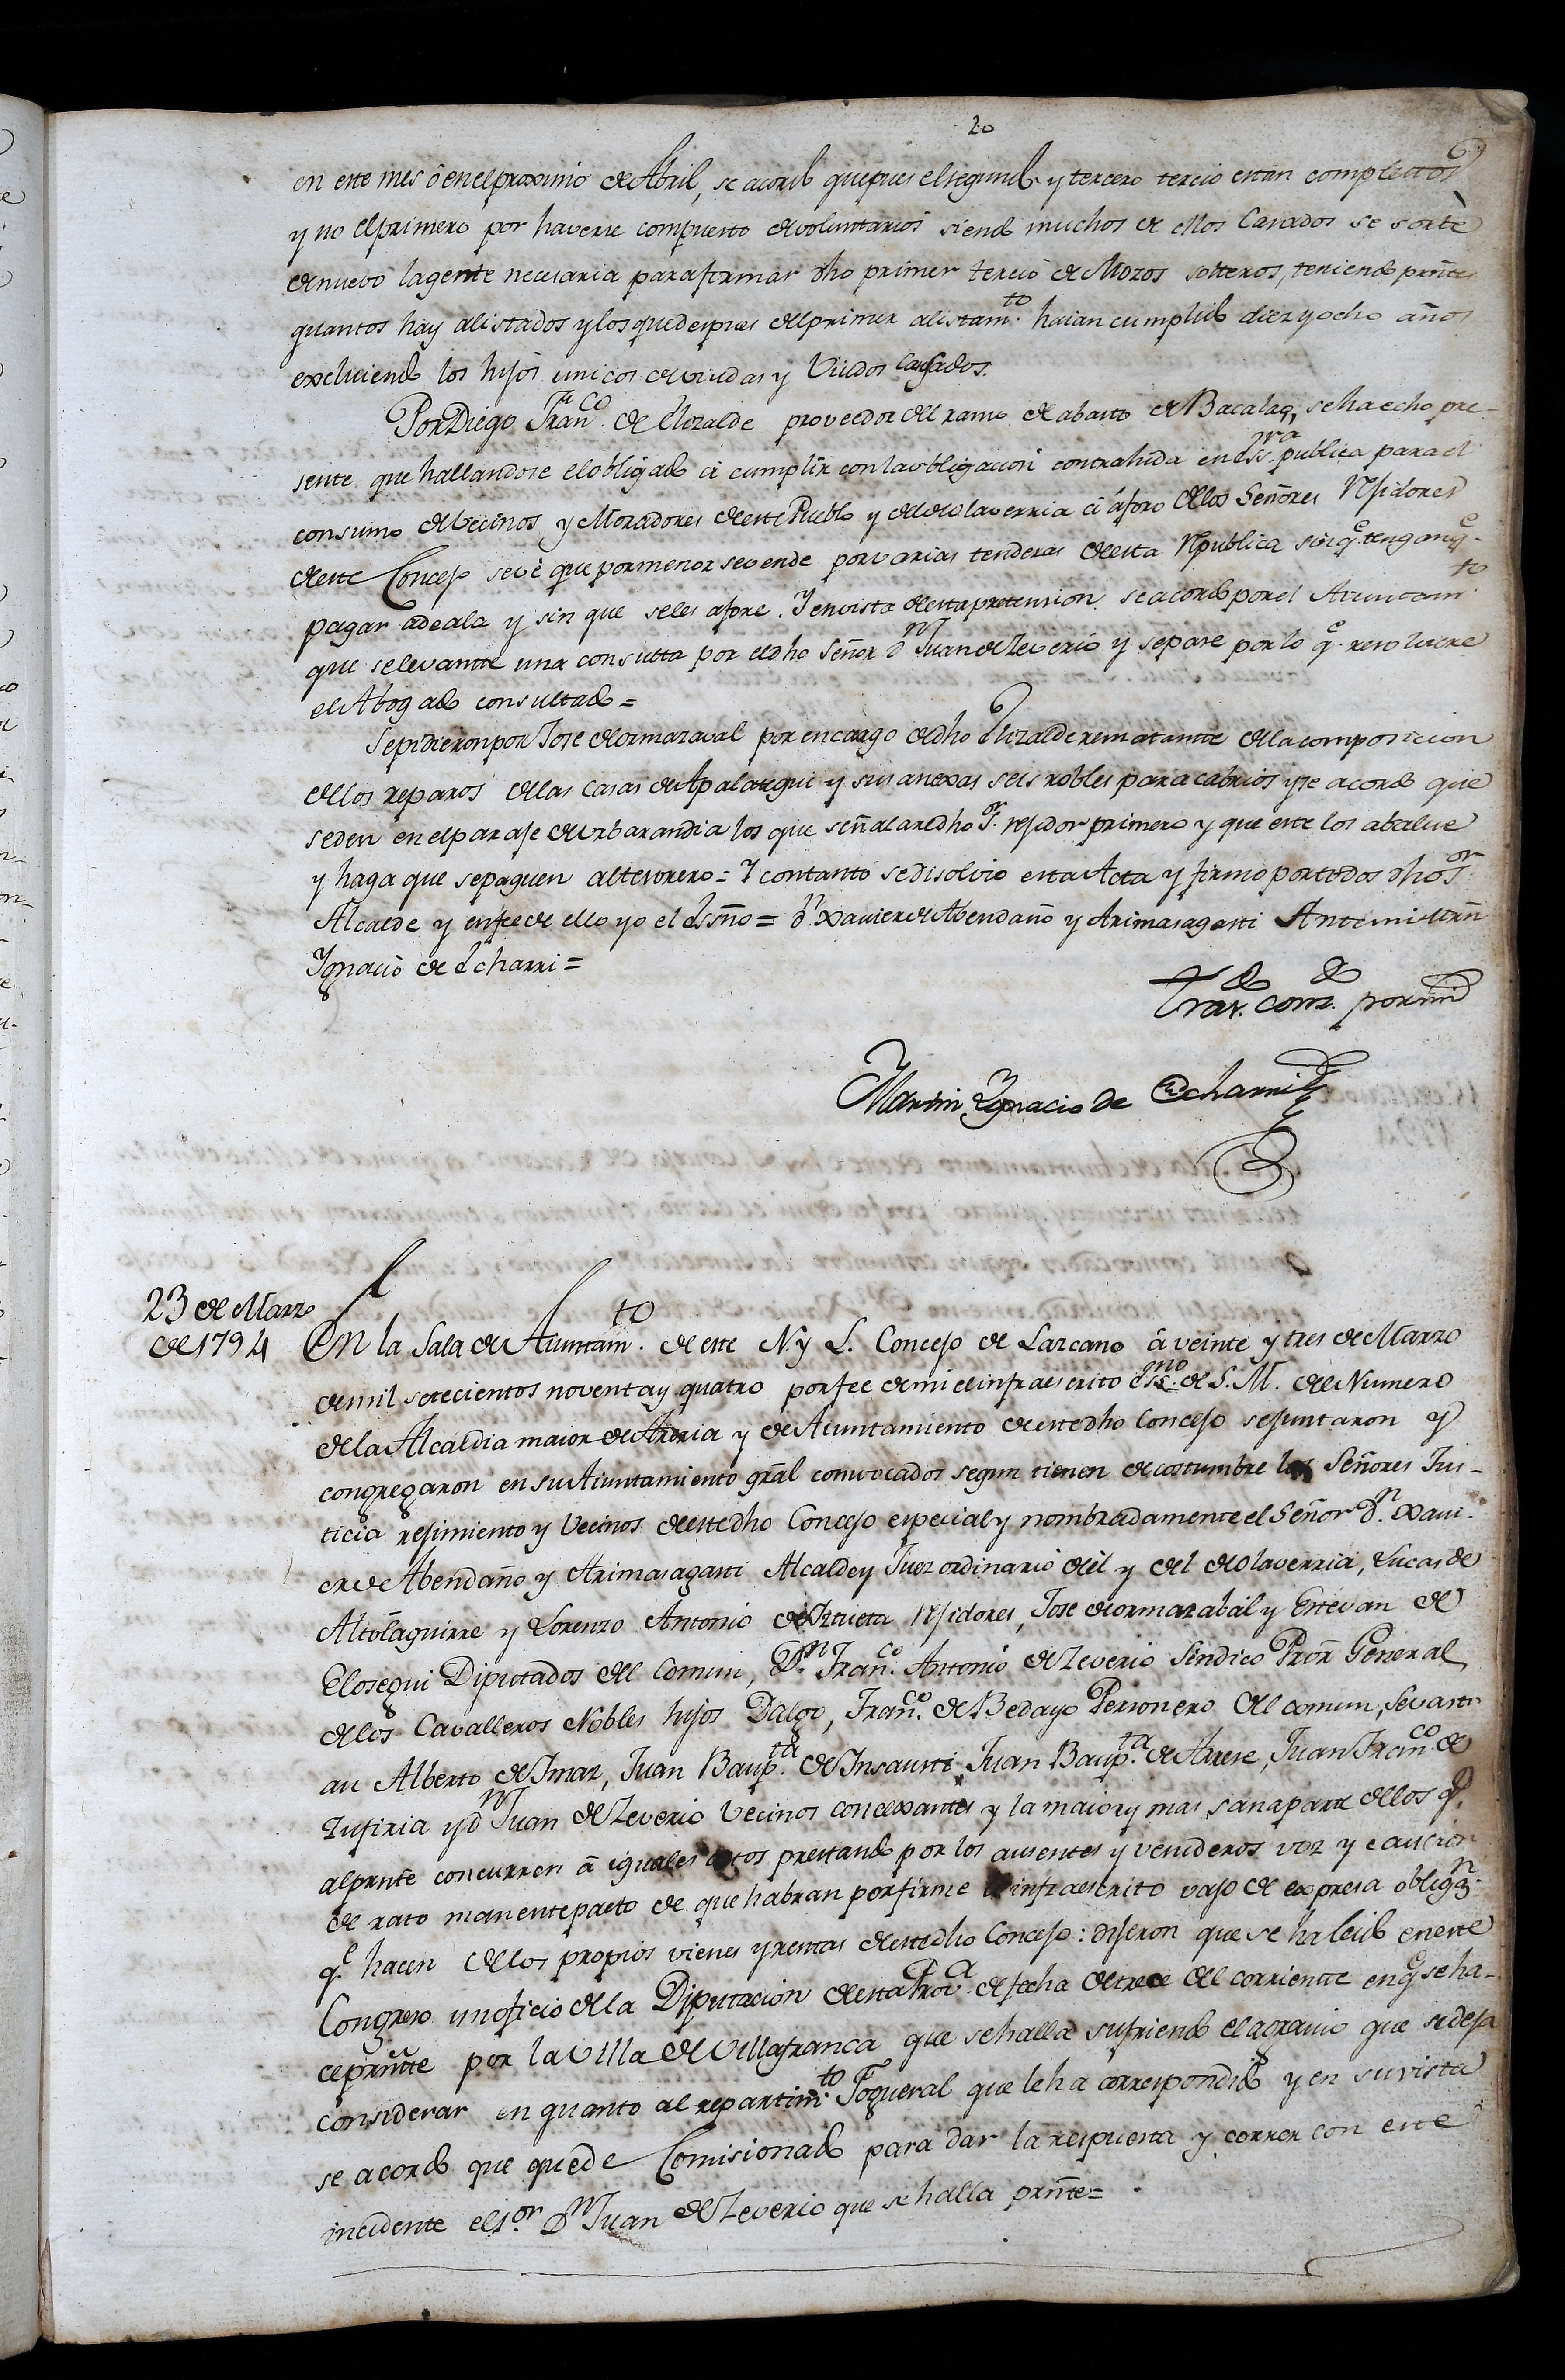 20
en este mes ó en el proximo de Abril, se acordó que pues el segundo y tercero tercio estan complettos
y no el primero por haverse compuesto de voluntarios siendo muchos de ellos Casados se sorteè
de nuevo la gente necesaria para firmar dho primer tercio de Mozos solteros, teniendo prñtes
quantos hay alistados y los que despues del primer alistamto. haian cumplido diez y ocho años
excluiendo los hijos unicos de viudas y Viudos Cassados.
Por Diego Franco. de Elizalde proveedor del ramo de abasto de Bacalao, se ha echo pre-
sente que hallandose el obligado á cumplir con la obligacion contrahida en Essra. publica para el
consumo de Vecinos y Moradores de este Pueblo y del de olaverria á áforo de los Señores Rexidores
de este Concejo se vè que por menor se vende por varias tenderas de esta Republica sin qe. tengan qe.
pagar ádeala y sin que se les afore. Y en vista de esta pretension se acordó por el Aiuntamto
que se levantte una consulta por el dho Señor dn Juan de Zeverio y se pase por lo qe. resolviere
el Abogado consultado =
Se pidieron por Jose de ormazaval por encargo de dho Elizalde rematantte de la composicion
de los reparos de las Casas de Apalategui y sus anexas seis robles para cabrios y se acordó que
se den en el paraje de Urbarandia los que señalare dho Sor. rejidor primero y que este los abalue
y haga que se paguen al tesorero = Y con tanto se disolvio esta Acta y firmo por todos dho Sor
Alcalde y en fee de ello yo el Essño = dn Xavier de Abendaño y Arimasagasti Antemi Mrñ
Ygnacio de Echarri =
Tras. cons. por mi
Martin Ygnacio de Echarri
23 de Marzo
de 1794
En la Sala de Aiuntamto. de este N. y L. Concejo de Lazcano á veinte y tres de Marzo
de mil setecientos noventa y quatro por fee de mi el infraescrito Essno de S. M. del Numero
de la Alcaldia maior de Areria y de Aiuntamiento de este dho Concejo se juntaron y
congregaron en su Aiuntamiento gñral convocados segun tienen de costumbre los Señores Jus-
ticia rejimiento y Vecinos de este dho Concejo especial y nombradamente el Señor dn. Xavi-
er de Abendaño y Arimasagasti Alcalde y Juez ordinario de èl y del de olaverria, Lucas de
Altolaguirre y Lorenzo Antonio de Iztueta Rexidores, Jose de ormazabal y Estevan de
Elosegui Diputados del Comun, Dn. Franco. Antonio de Zeverio Sindico Prõr General
de los Cavalleros Nobles hijos Dalgo, Franco. de Bedayo Personero del comun, Sevasti-
an Alberto de Imaz, Juan Baupta. de Insausti, Juan Baupta. de Arrese, Juan Franco. de
Zufiria y dn Juan de Zeverio Vecinos concexantes y la maior y mas sana parte de los qe.
al prñte concurren á iguales actos prestando por los ausentes y venideros voz y caucion
de rato manente pacto de que habran por firme lo infraescrito vajo de expresa obligazn.
qe. hacen de los propios vienes y rentas de este dho Concejo: dijeron que se ha leido en este
Congreso un oficio de la Diputacion de esta Prova. de fecha de trece del corriente en qe. se ha-
ce prñtte por la Villa de Villafranca que se halla sufriendo el agravio que se deja
considerar en quanto al repartimto. Fogueral que le ha correspondido y en su vista
se acordó que quede Comisionado para dar la respuesta y correr con este
incidente el Sor. Dn Juan de Zeverio que se halla prñte =